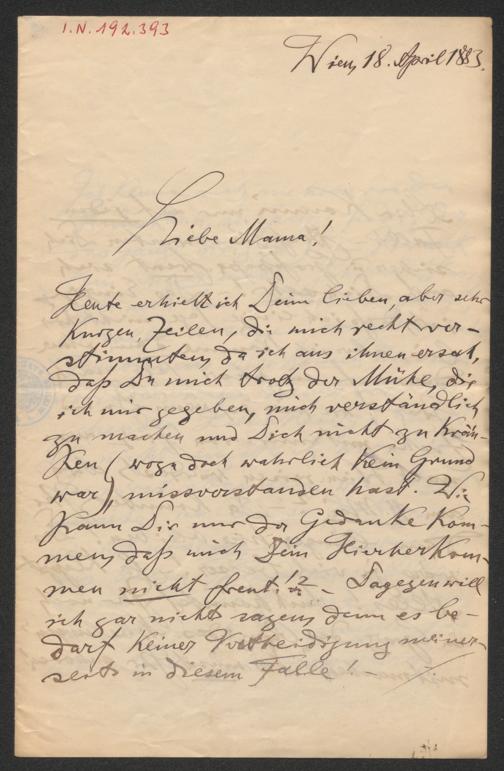 I.N. 192.393
Wien, 18. April 1883.
Liebe Mama!
Heute erhielt ich Deine lieben, aber sehr
kurzen Zeilen, die mich recht ver-
stimmten, da ich aus ihnen ersah,
daß Du mich trotz der Mühe, die
ich mir gegeben, mich verständlich
zu machen und Dich nicht zu krän-
ken (wozu doch wahrlich kein Grund
war), missverstanden hast. Wie
kann Dir nur der Gedanke kom-
men, daß mich Dein Hierherkom-
men nicht freut!? – Dagegen will
ich gar nichts sagen, denn es be-
darf keiner Vertheidigung meiner-
seits in diesem Falle! –